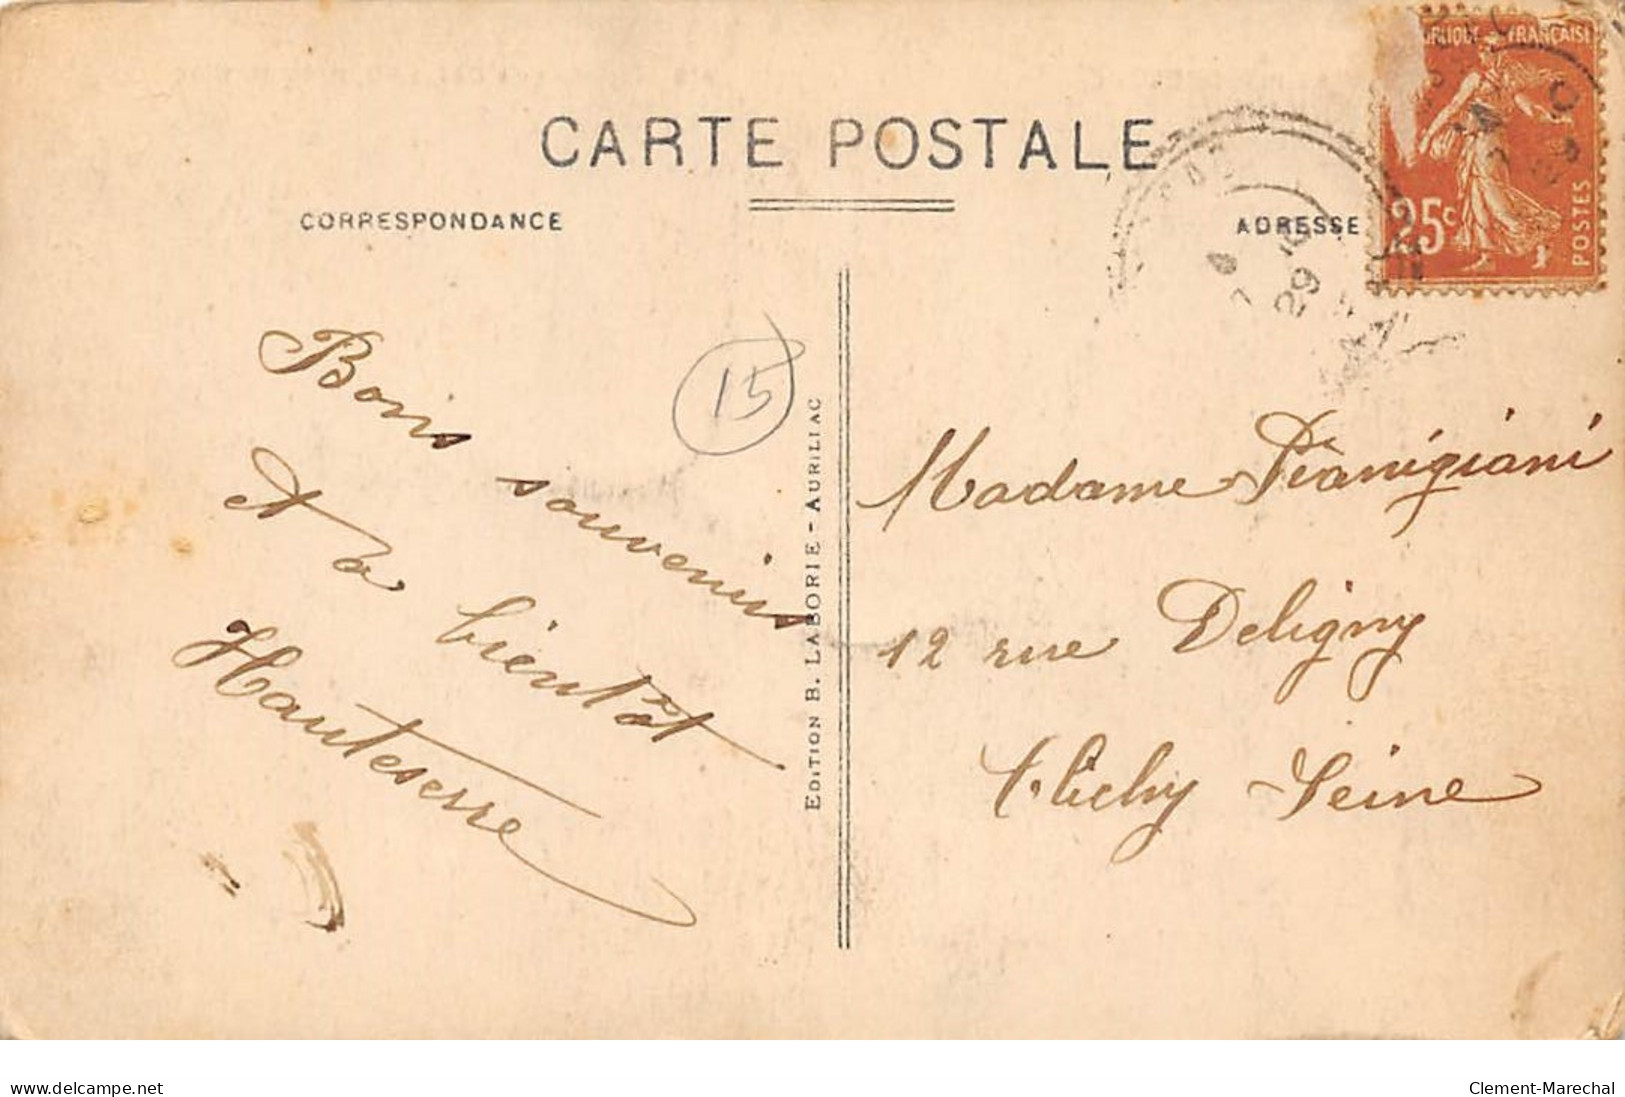 CARTE POSTALE
CORRESPONDANCE
ADRESSE
RÉPUBLIQUE FRANÇAISE
25c
POSTES
29
15
Bons souvenirs
Et à bientôt
Hauteserre
EDITION B. LABORIE - AURILIAC
Madame Pianigiani
12 rue Deligny
Clichy Seine
www.delcampe.net
Clement-Marechal